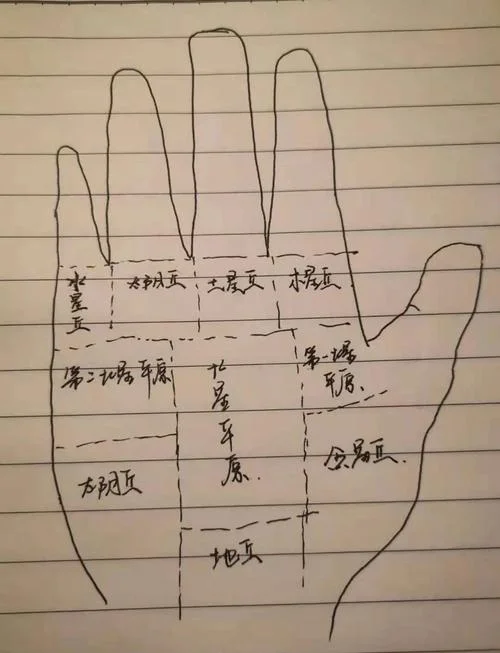 水星丘
太阳丘
土星丘
木星丘
第二火星平原
火星平原.
第一火星
平原.
太阴丘
金星丘.
地丘